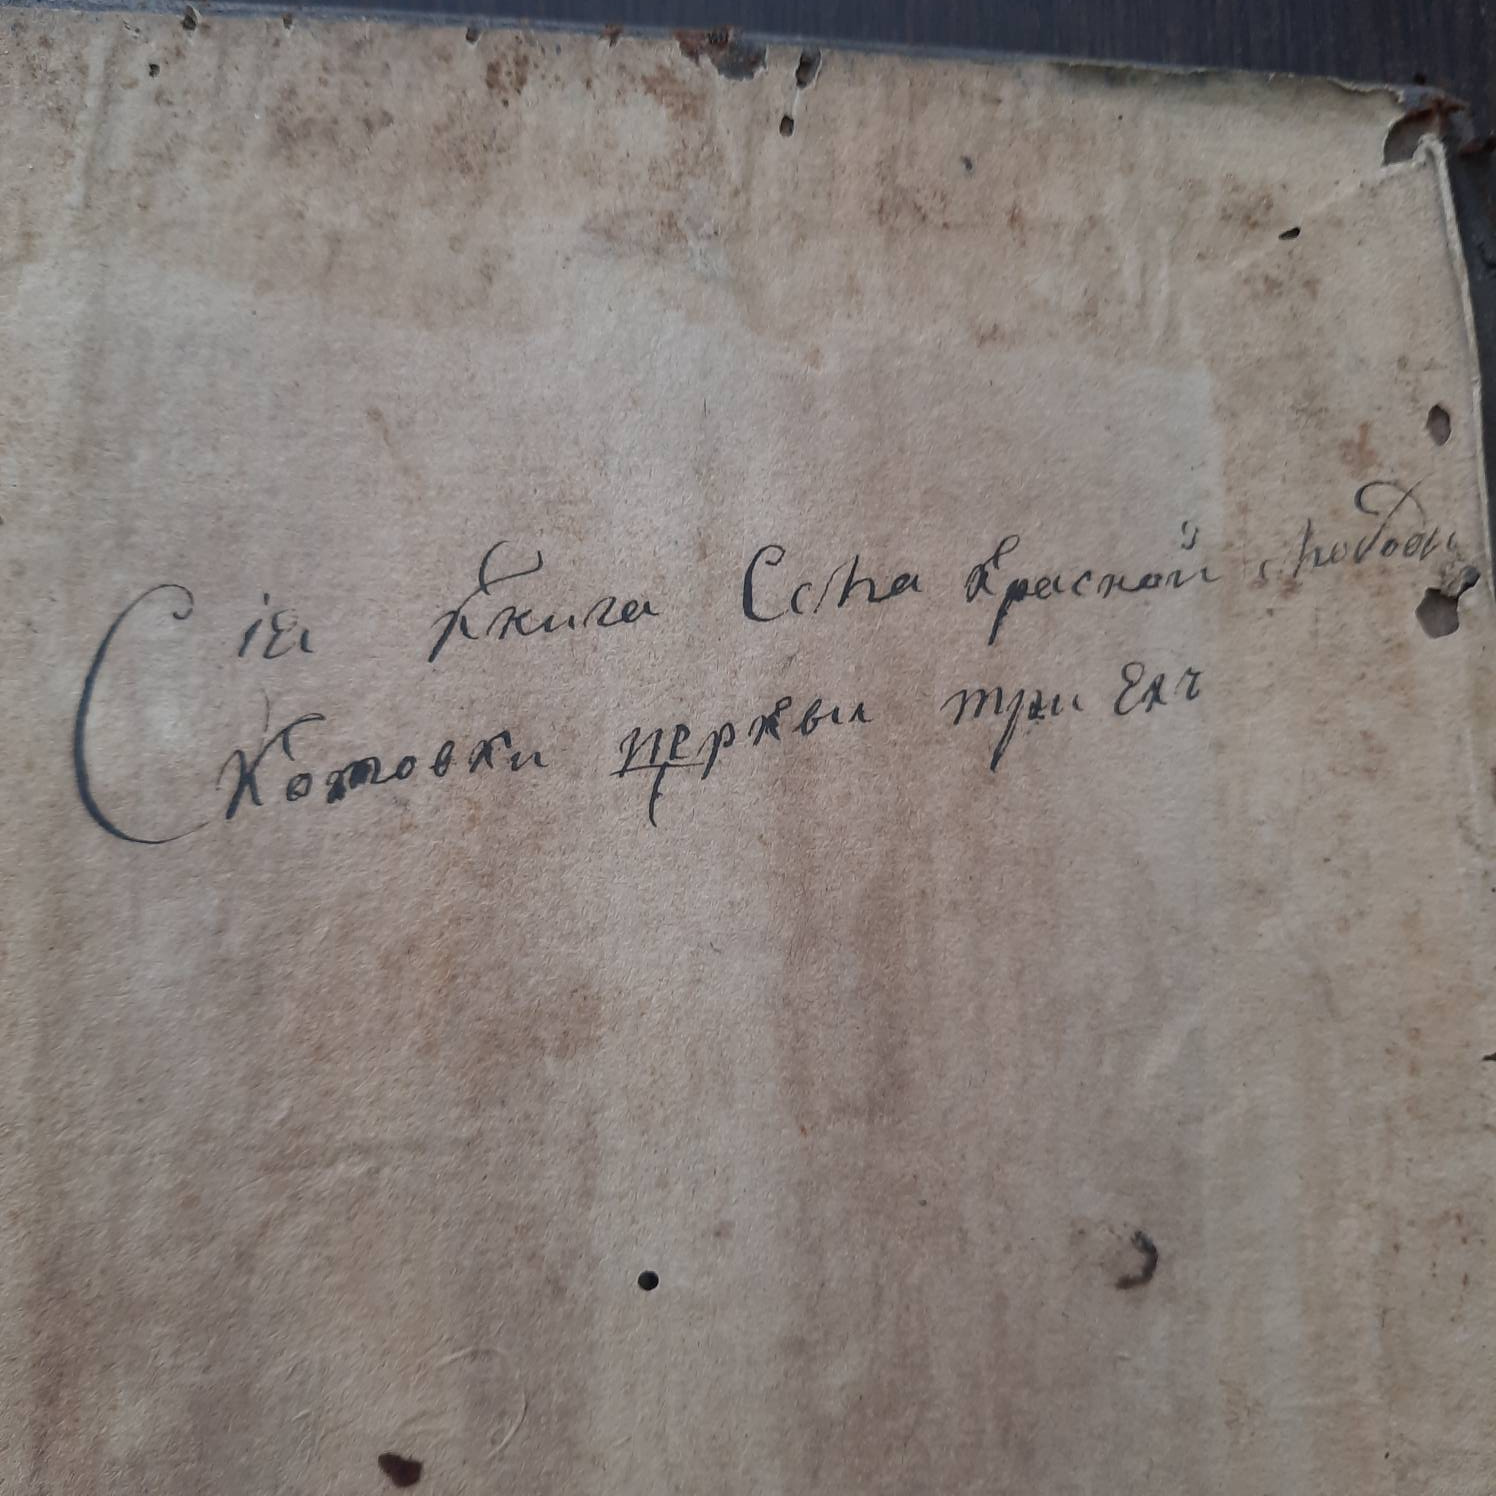 Сія книга Села Красной слободы
Котовки церквы три